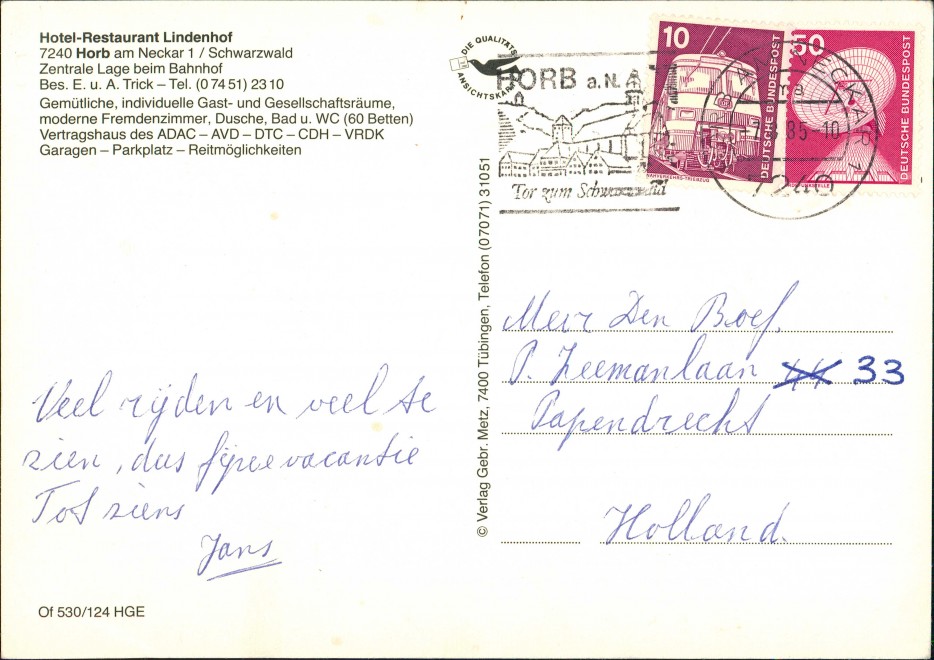 Hotel-Restaurant Lindenhof
7240 Horb am Neckar 1 / Schwarzwald
Zentrale Lage beim Bahnhof
Bes. E. u. A. Trick – Tel. (0 74 51) 23 10
Gemütliche, individuelle Gast- und Gesellschaftsräume,
moderne Fremdenzimmer, Dusche, Bad u. WC (60 Betten)
Vertragshaus des ADAC – AVD – DTC – CDH – VRDK
Garagen – Parkplatz – Reitmöglichkeiten
DIE QUALITÄTS
ANSICHTSKARTE
HORB a.N.
Tor zum Schwarzwald
10
DEUTSCHE BUNDESPOST
NAHVERKEHRS-TRIEBZUG
50
DEUTSCHE BUNDESPOST
7240
Veel rijden en veel te
zien, dus fijne vacantie
Tot ziens
Jans
© Verlag Gebr. Metz, 7400 Tübingen, Telefon (07071) 31051
Mevr Den Boef.
P. Zeemanlaan 44 33
Papendrecht
Holland.
Of 530/124 HGE